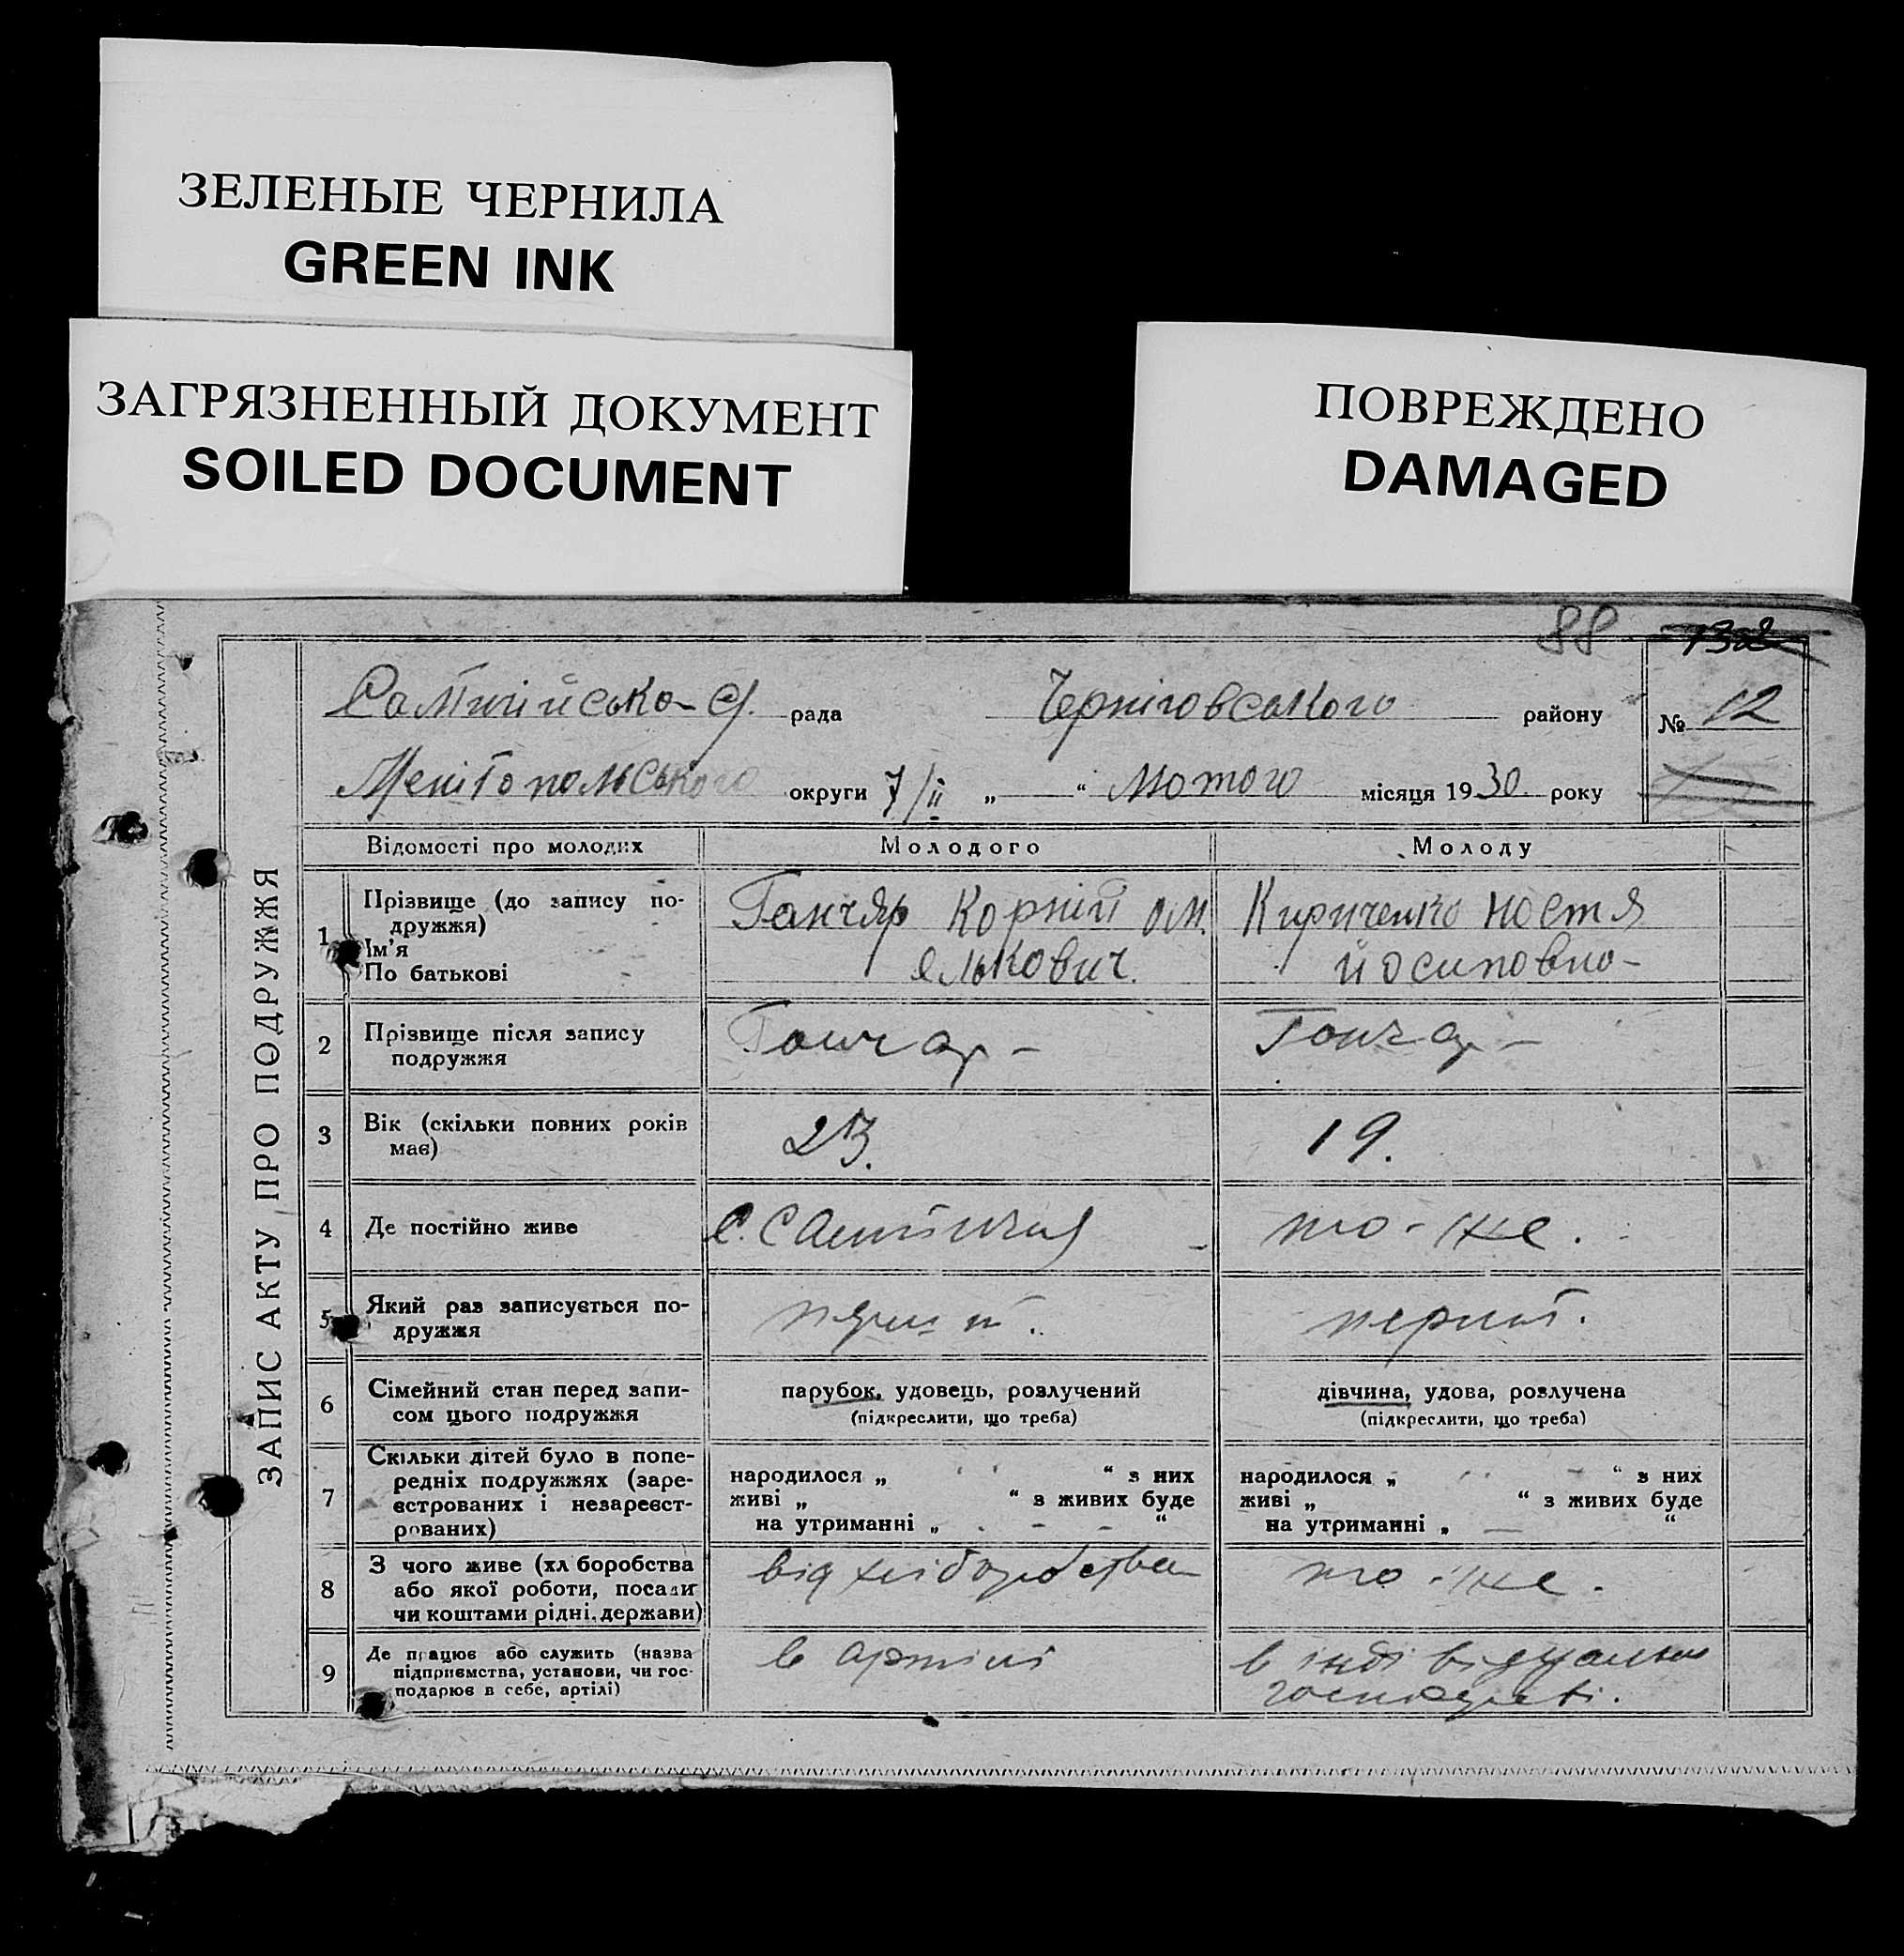 ЗЕЛЕНЫЕ ЧЕРНИЛА
GREEN INK
ЗАГРЯЗНЕННЫЙ ДОКУМЕНТ
SOILED DOCUMENT
ПОВРЕЖДЕНО
DAMAGED
88
132
рада Черніговського району № 12
округи 7/ІІ „ “ лютого місяця 1930 року
ЗАПИС АКТУ ПРО ПОДРУЖЖЯ
Відомості про молодих Молодого Молоду
1 Прізвище (до запису по-
дружжя)
Ім'я
По батькові
Гончяр Корній Ом.
елькович.
Кириченко Настя
Йосиповна-
2 Прізвище після запису
подружжя
Гончар - Гончар -
3 Вік (скільки повних років
має)
23. 19.
4 Де постійно живе с. то-же.
5 Який раз записується по-
дружжя
перший. перший.
6 Сімейний стан перед запи-
сом цього подружжя
парубок, удовець, розлучений
(підкреслити, що треба)
дівчина, удова, розлучена
(підкреслити, що треба)
7 Скільки дітей було в попе-
редніх подружжях (заре-
єстрованих і незареєст-
рованих)
народилося „ “ з них
живі „ “ з живих буде
на утриманні „ “
народилося „ “ з них
живі „ “ з живих буде
на утриманні „ “
8 З чого живе (хліборобства
або якої роботи, посади
чи коштами рідні, держави)
від хліборобства то-же.
9 Де працює або служить (назва
підприємства, установи, чи гос-
подарює в себе, артілі)
в артілі
в